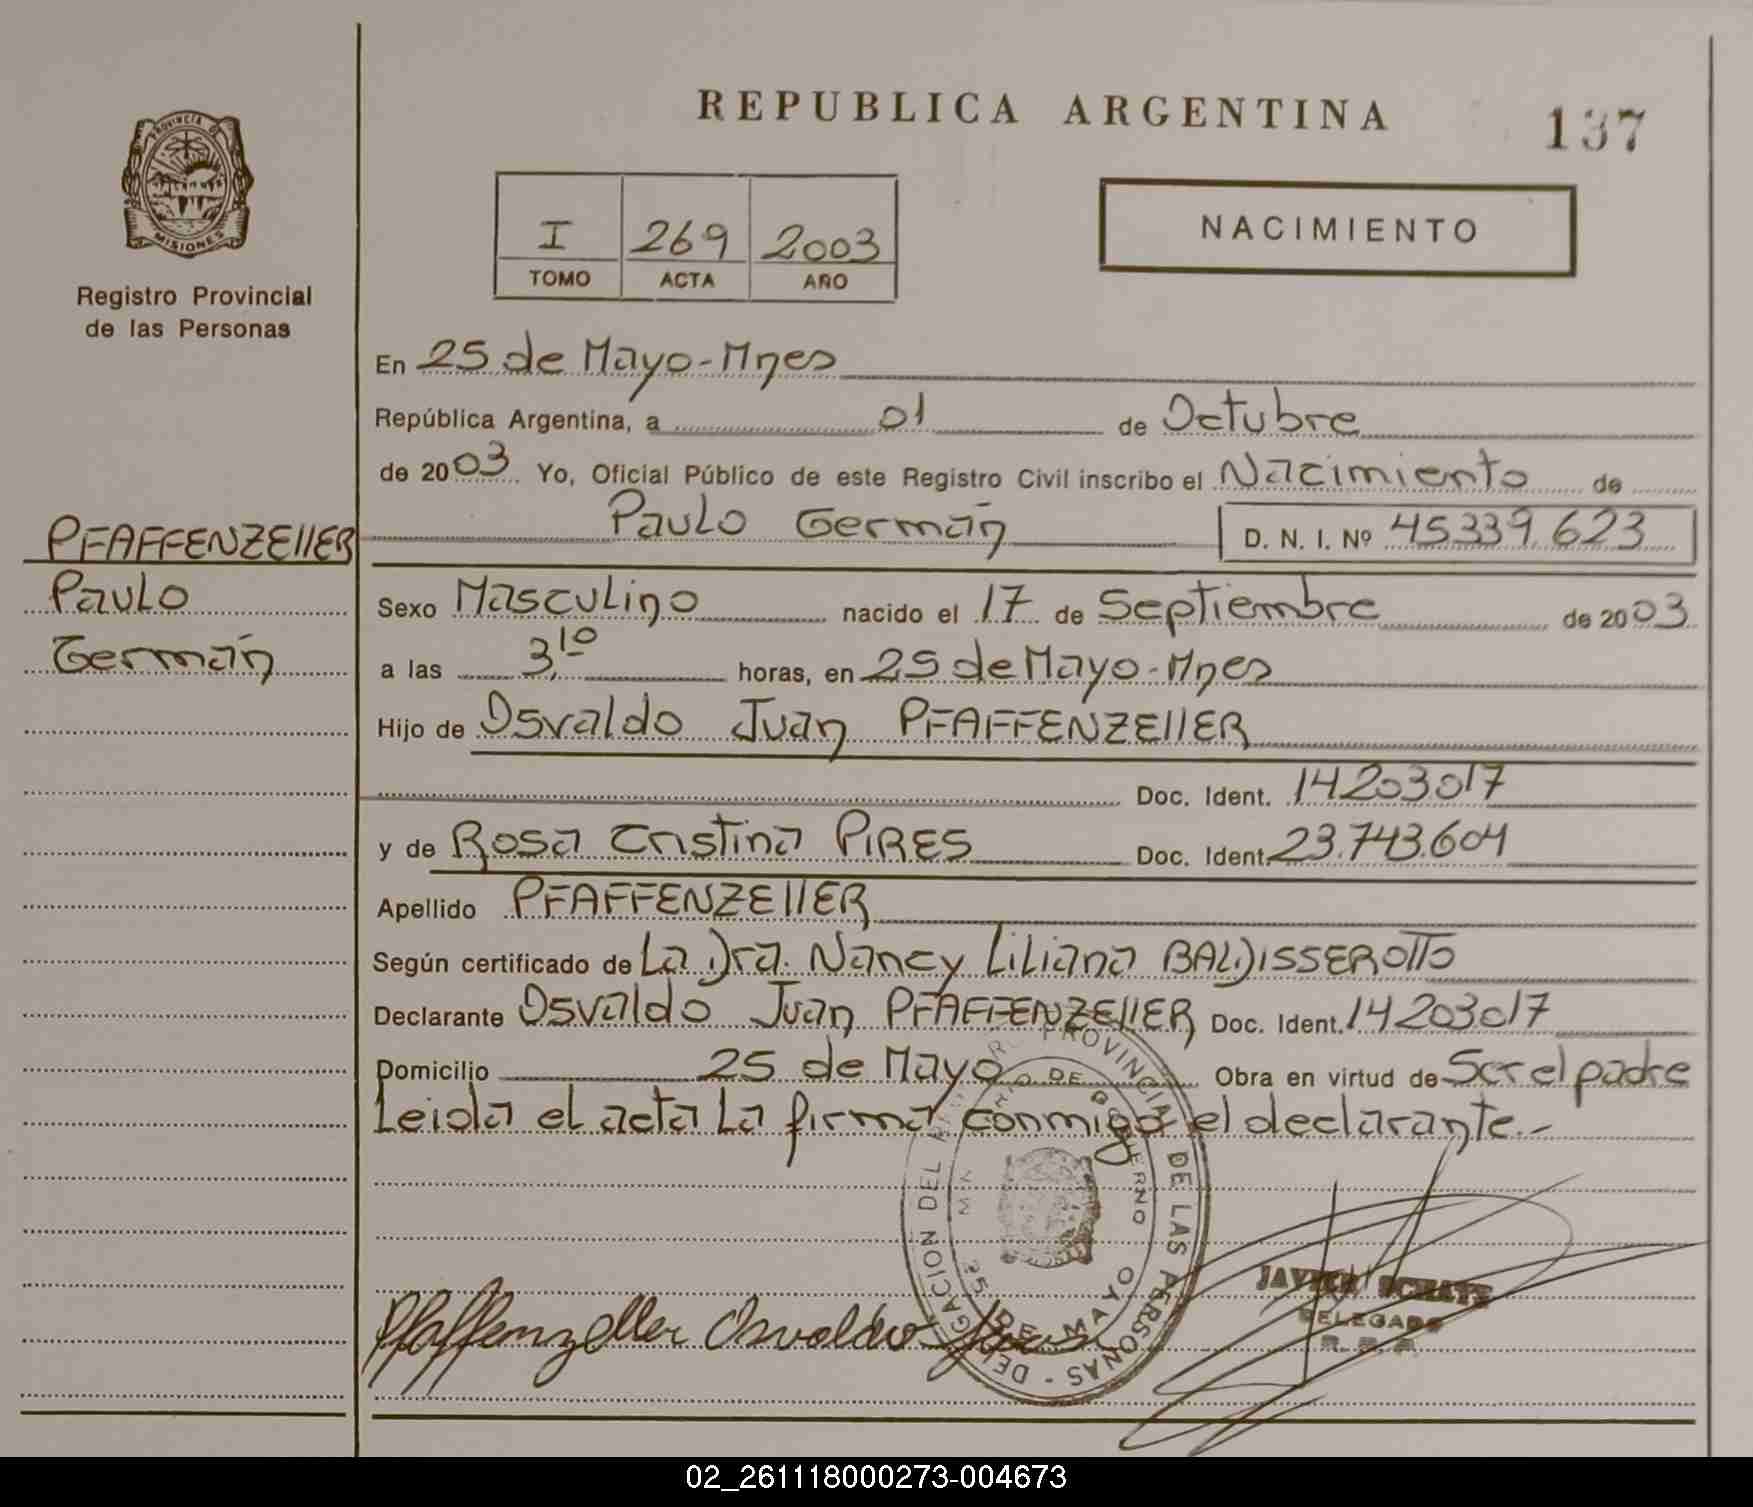 REPUBLICA ARGENTINA
137
PROVINCIA DE
MISIONES
Registro Provincial
de las Personas
I 269 2003
TOMO ACTA AÑO
NACIMIENTO
En 25 de Mayo-Mnes
República Argentina, a 01 de Octubre
de 2003 Yo, Oficial Público de este Registro Civil inscribo el Nacimiento de
Paulo Germán D. N. I. Nº 45339.623
PFAFFENZEllER
Paulo
Germán
Sexo Masculino nacido el 17 de Septiembre de 2003
a las 3,10 horas, en 25 de Mayo-Mnes
Hijo de Osvaldo Juan PFAFFENZEllER
Doc. Ident. 14203017
y de Rosa Cristina PIRES Doc. Ident. 23.743.604
Apellido PFAFFENZEllER
Según certificado de La Dra. Nancy Liliana BALDISSEROTTO
Declarante Osvaldo Juan PFAFFENZEllER Doc. Ident. 14203017
Domicilio 25 de Mayo Obra en virtud de Ser el padre
Leida el acta La firma conmigo el declarante.-
DELEGACION DEL REGISTRO PROVINCIAL DE LAS PERSONAS -
MINISTERIO DE GOBIERNO
25 DE MAYO
Pfaffenzeller Osvaldo Juan
JAVIER
DELEGADO
R. P. P.
02_261118000273-004673